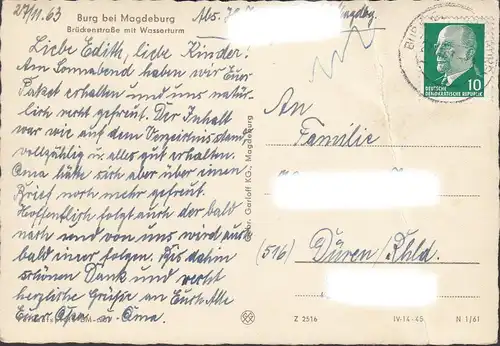 27/11.63
Burg bei Magdeburg
Brückenstraße mit Wasserturm
Abs.
Liebe Edith, liebe Kinder!
Am Sonnabend haben wir Euer
Paket erhalten und uns natür-
lich recht gefreut. Der Inhalt
war wie auf dem Verzeichnis stand
vollzählig u. alles gut erhalten.
Oma hätte sich aber über einen
Brief noch mehr gefreut.
Hoffentlich folgt auch der bald
nach und von uns wird auch
bald einer folgen. Bis dahin
schönen Dank und recht
herzliche Grüße an Euch Alle
Euer Opa u. Oma
Gebr. Garloff KG., Magdeburg
BURG
DEUTSCHE
DEMOKRATISCHE REPUBLIK
10
An
Familie
(516) Düren/Rhld.
Z 2516 IV-14-45 N 1/61